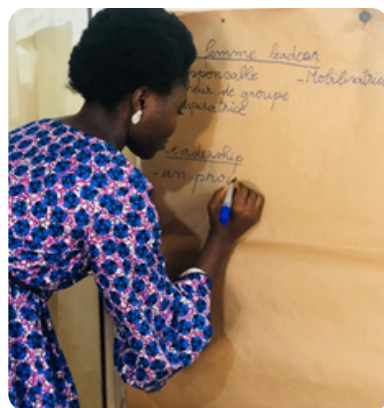 femme leader
sponsable - Mobilisatrice
de groupe
spiratrice
leadership
- un proc